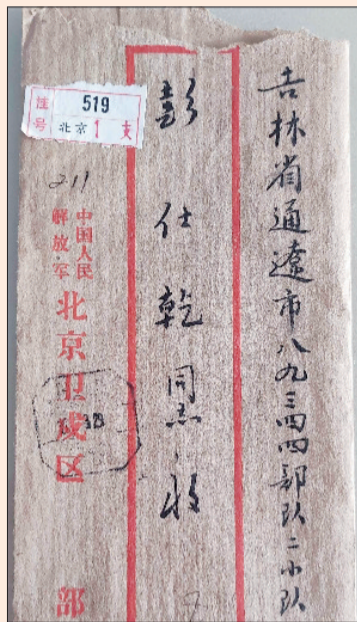 吉林省通遼市八九三四四部队二小队
彭仕乾同志收
挂号
519
北京1支
211
中国人民
解放军
北京卫戍区
部